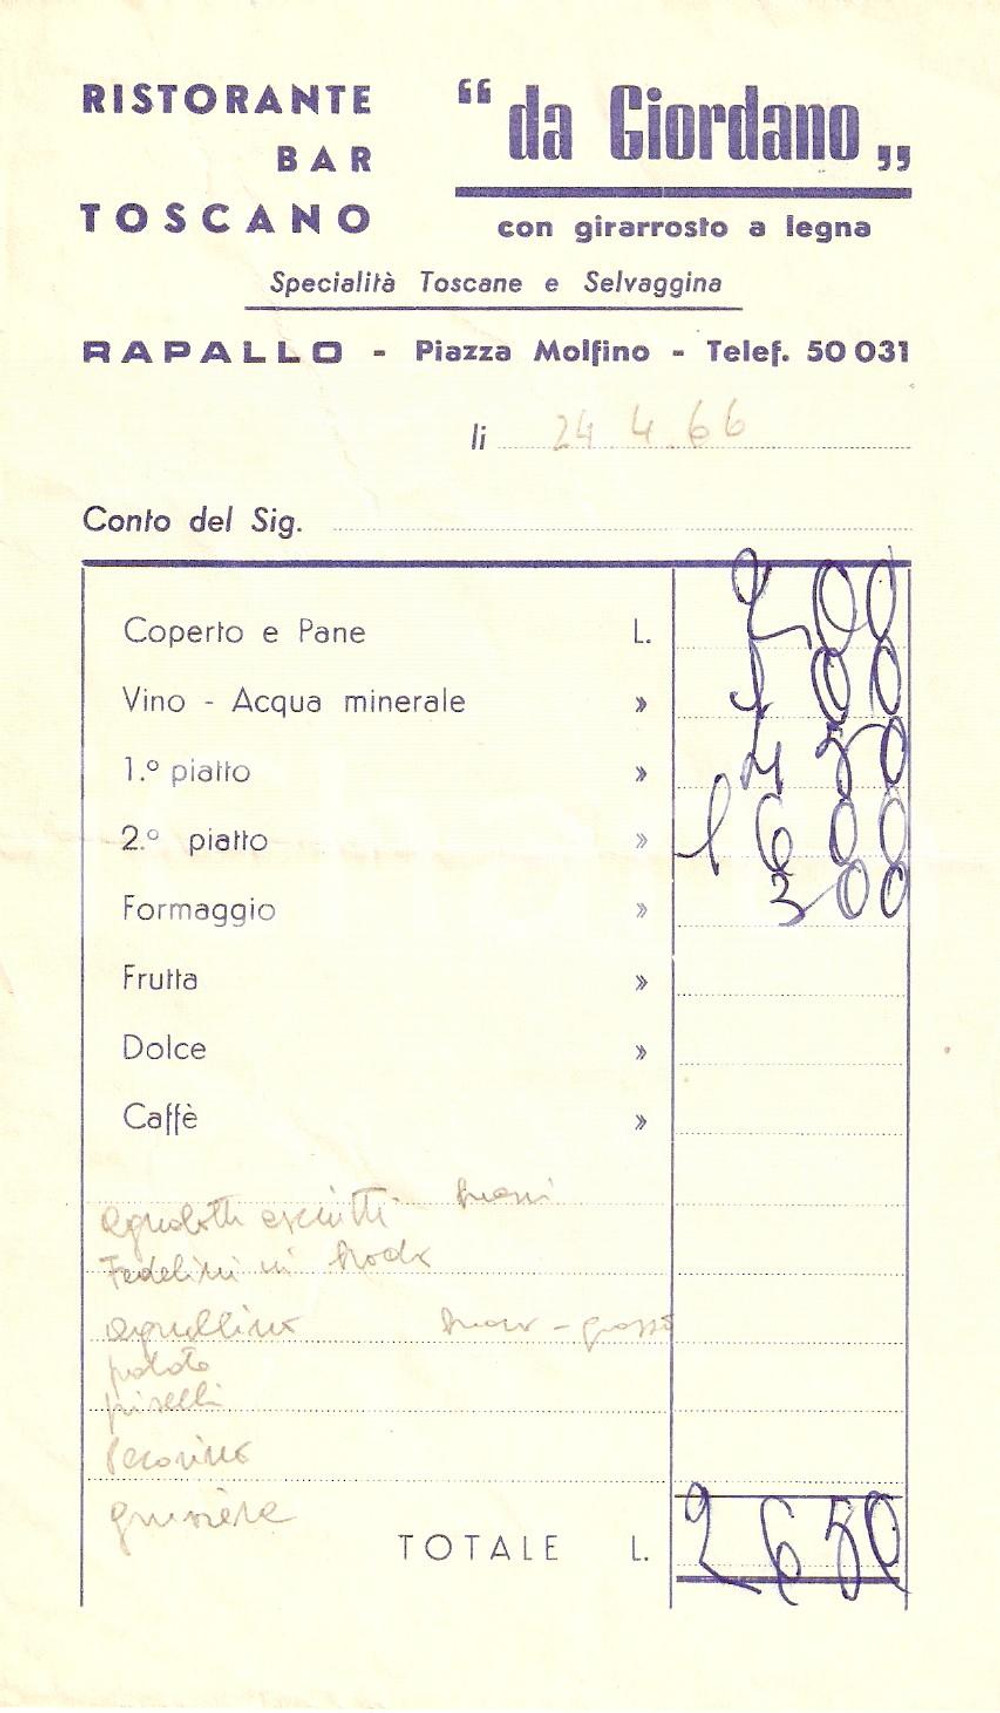 RISTORANTE
BAR
TOSCANO
“ da Giordano „
con girarrosto a legna
Specialità Toscane e Selvaggina
RAPALLO - Piazza Molfino - Telef. 50 031
li 24 4.66
Conto del Sig.
Coperto e Pane L. 200
Vino - Acqua minerale » 100
1.º piatto » 450
2.º piatto » 1600
Formaggio » 300
Frutta »
Dolce »
Caffè »
agnolotti asciutti
Fedelini in brodo
patate
piselli
Pecorino
TOTALE L. 2650